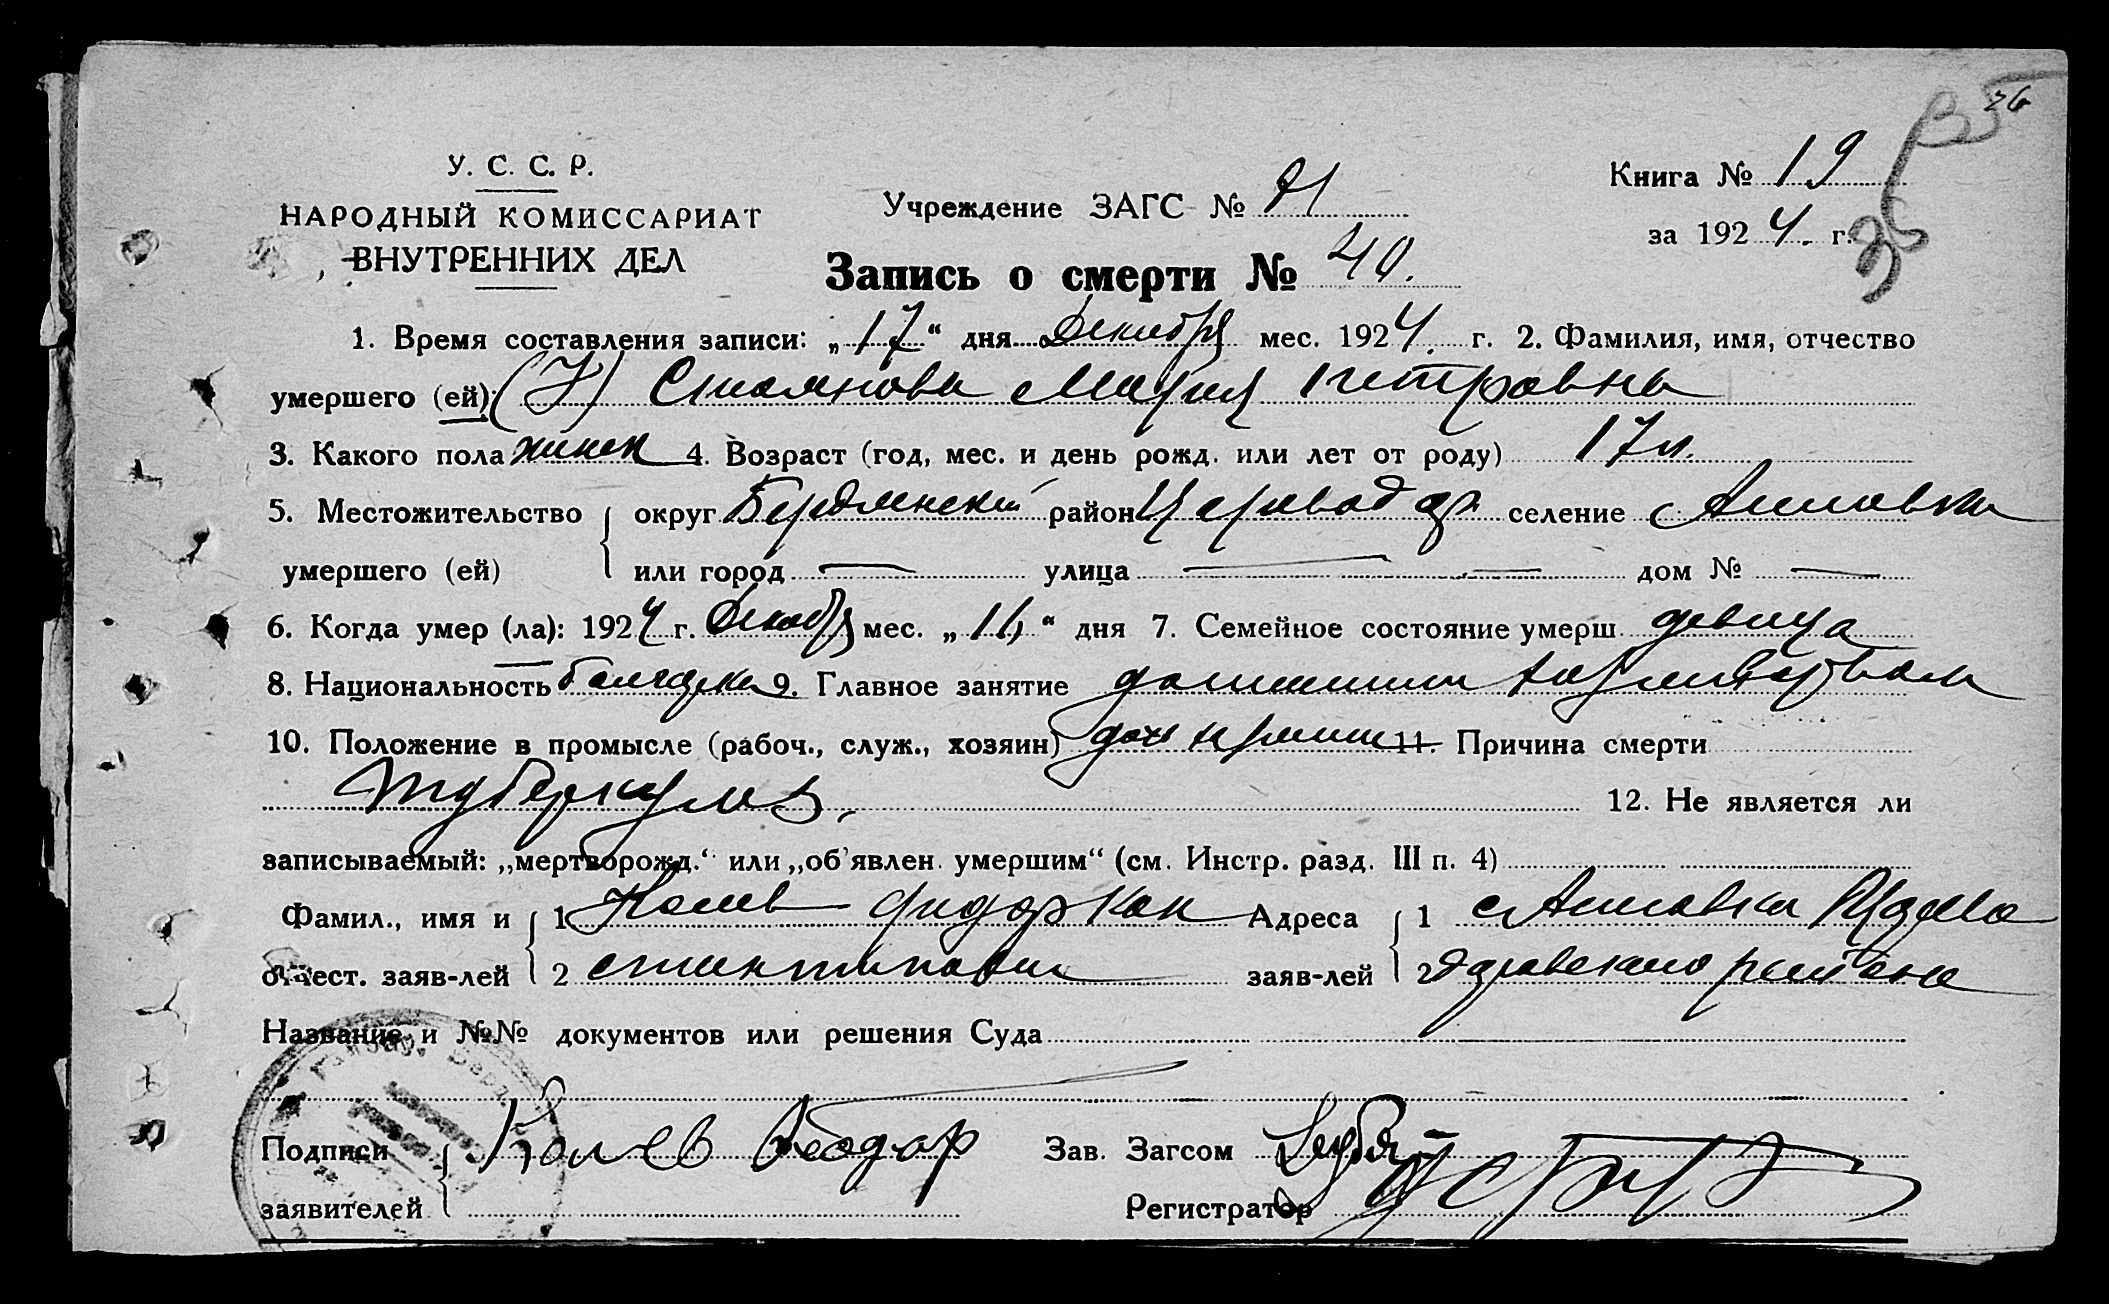 26
У. С. С. Р.
НАРОДНЫЙ КОМИССАРИАТ
ВНУТРЕННИХ ДЕЛ
Учреждение ЗАГС №
Книга № 19
за 1924. г.
Запись о смерти № 40.
1. Время составления записи: „17“ дня Декабря мес. 1924. г. 2. Фамилия, имя, отчество
умершего (ей) Стоянова Мария Петровна
3. Какого пола женск 4. Возраст (год, мес. и день рожд. или лет от роду) 17 л.
5. Местожительство округ Бердянский район селение с Анновка
умершего (ей) или город — улица — дом № —
6. Когда умер (ла): 1924 г. Декабря мес. „16“ дня 7. Семейное состояние умерш. девица
8. Национальность болгарка 9. Главное занятие
10. Положение в промысле (рабоч., служ., хозяин) 11. Причина смерти
туберкулез.
12. Не является ли
записываемый: „мертворожд.“ или „об'явлен. умершим“ (см. Инстр. разд. III п. 4)
Фамил., имя и 1 Колев Фидор Кон Адреса 1 с Анновки
отчест. заяв-лей 2 стантинович заяв-лей 2 района
Название и №№ документов или решения Суда
Подписи Колев Феодор Зав. Загсом
заявителей Регистратор